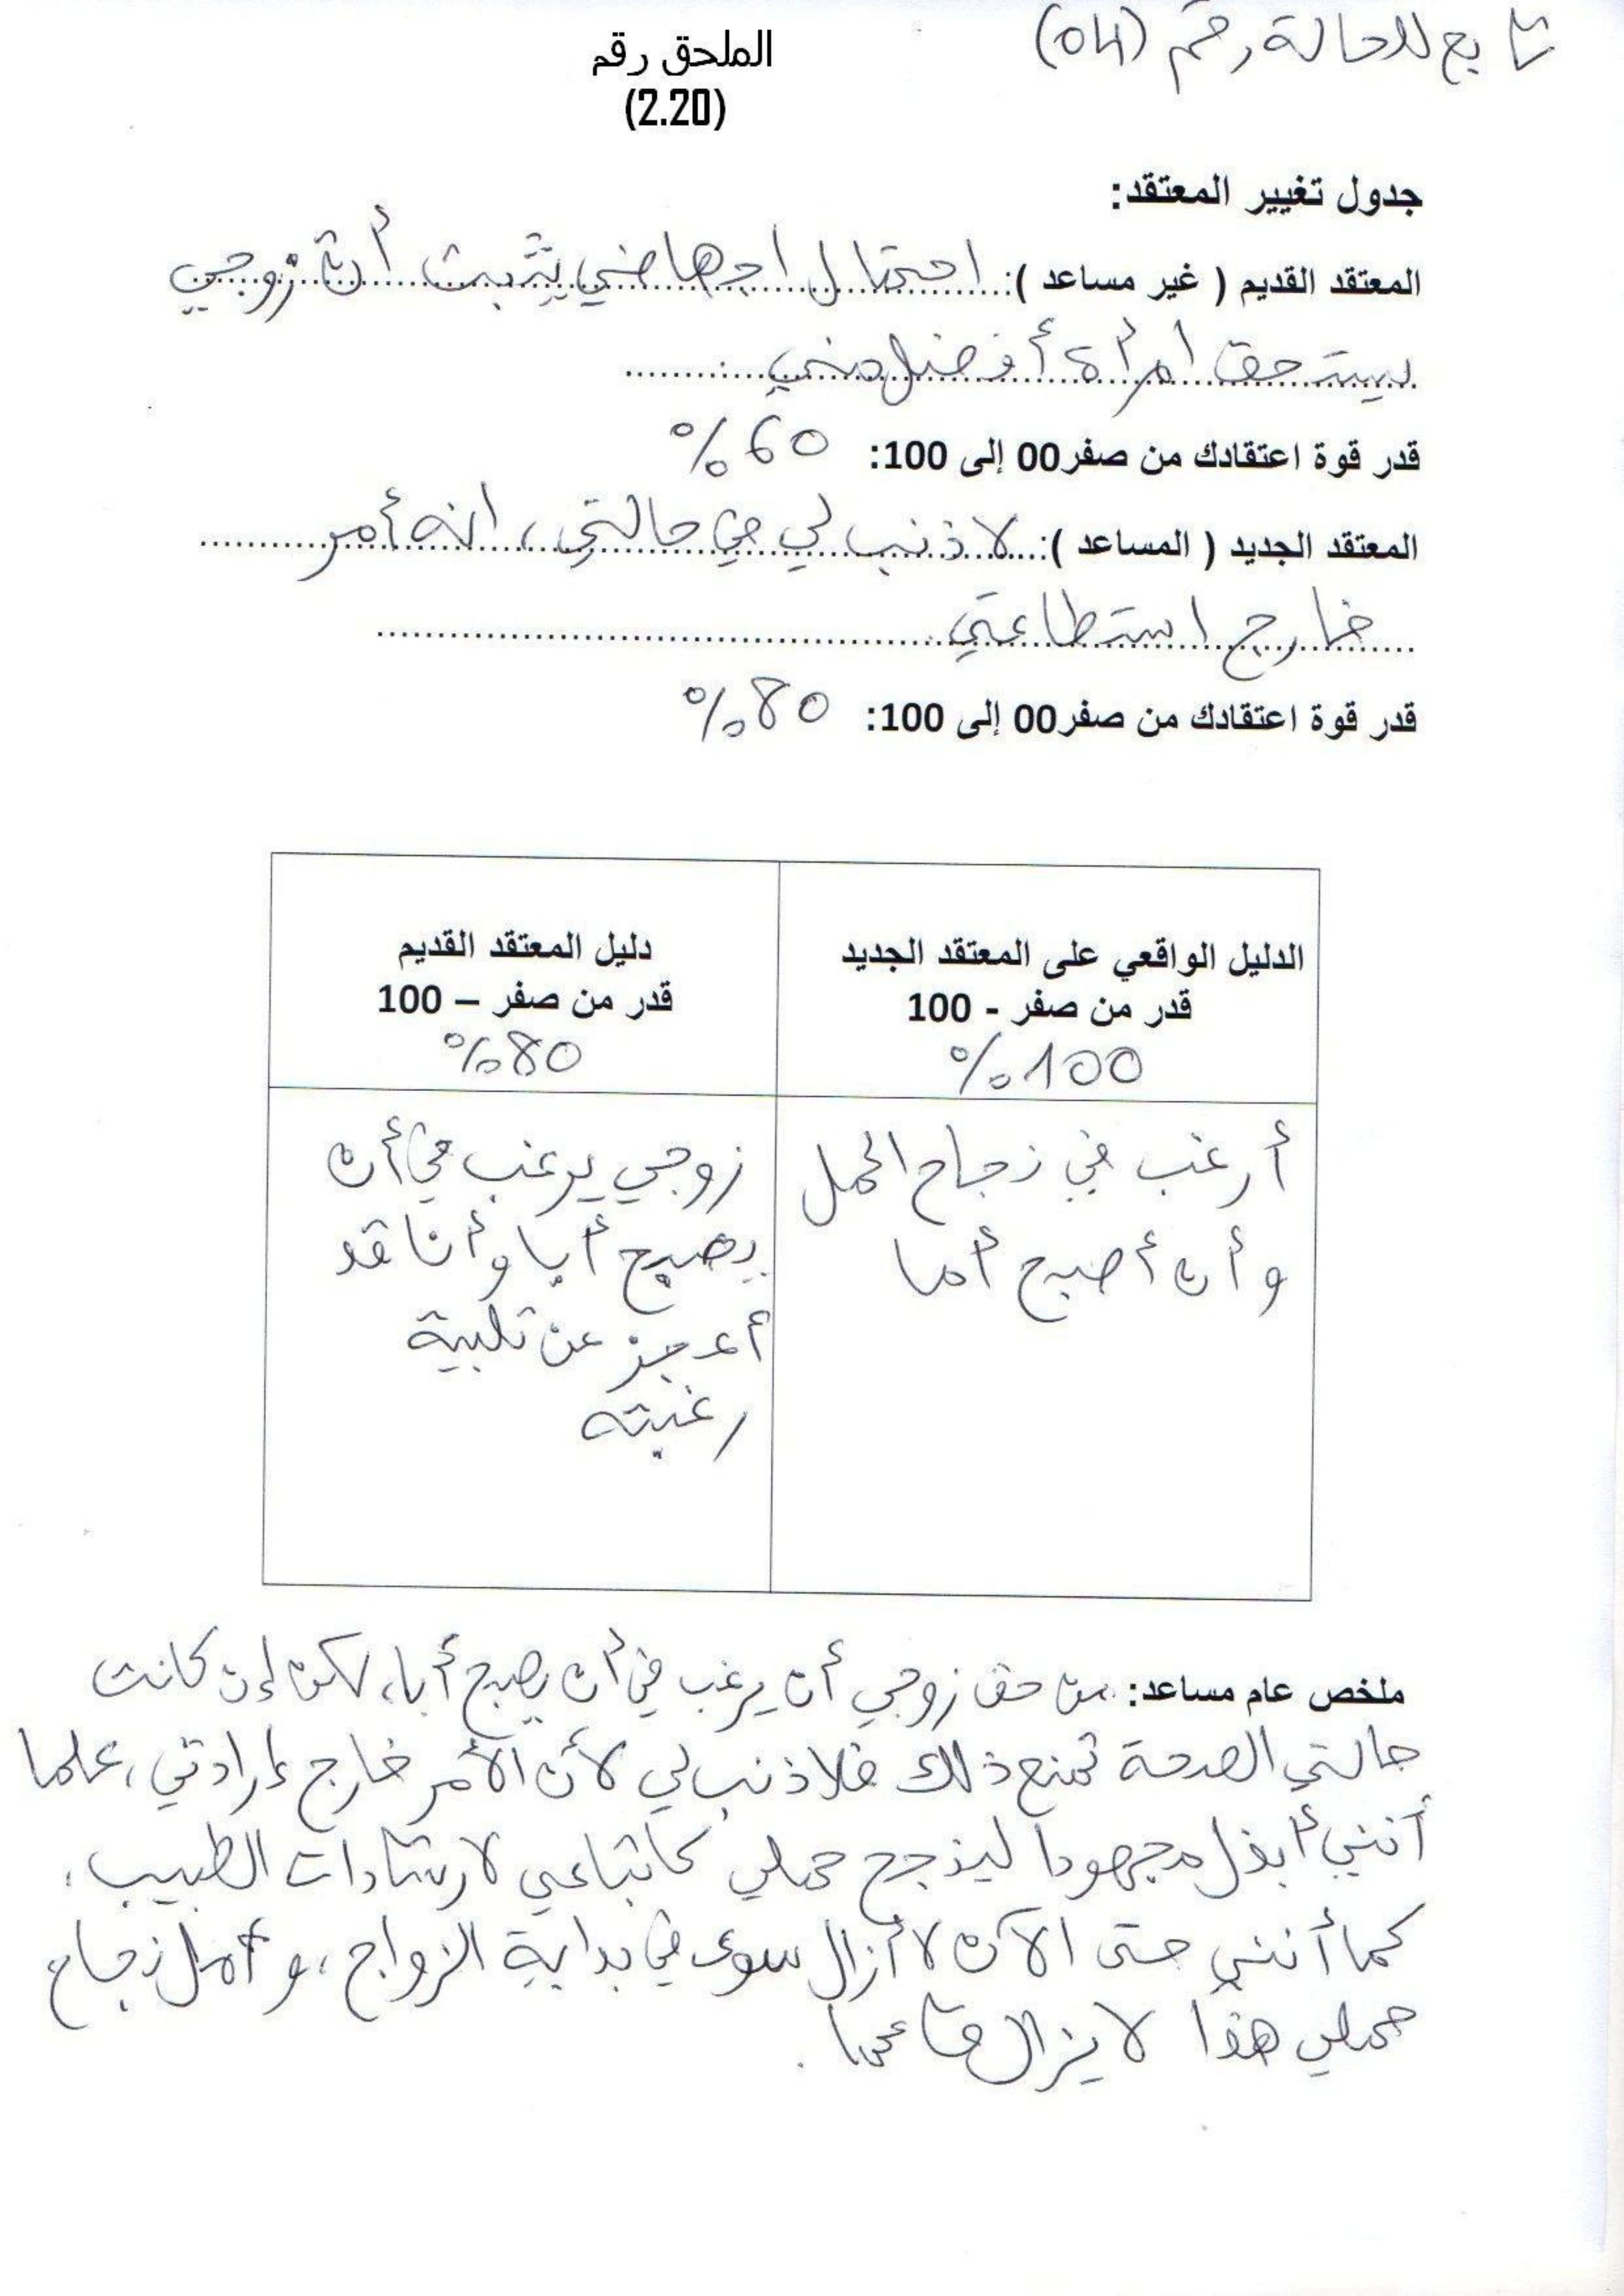 تابع للحالة رقم (04)
الملحق رقم
(2.20)
جدول تغيير المعتقد:
المعتقد القديم ( غير مساعد ): احتمال اجهاضي يثبت أن زوجي
يستحق امرأة أفضل مني
قدر قوة اعتقادك من صفر00 إلى 100: 60%
المعتقد الجديد ( المساعد ): لا ذنب لي في حالتي، انه أمر
خارج استطاعتي
قدر قوة اعتقادك من صفر00 إلى 100: 80%
الدليل الواقعي على المعتقد الجديد
قدر من صفر - 100
100%
أرغب في نجاح الحمل
وأن أصبح أما
دليل المعتقد القديم
قدر من صفر – 100
80%
زوجي يرغب في أن
يصبح أبا وأنا قد
أعجز عن تلبية
رغبته
ملخص عام مساعد: من حق زوجي أن يرغب في أن يصبح أبا، لكن إن كانت
حالتي الصحة تمنع ذلك فلا ذنب لي لأن الأمر خارج إرادتي، علما
أنني أبذل مجهودا لينجح حملي كاتباعي لارشادات الطبيب،
كما أنني حتى الآن لا أزال سوى في بداية الزواج، وأمل نجاح
حملي هذا لا يزال قائما.